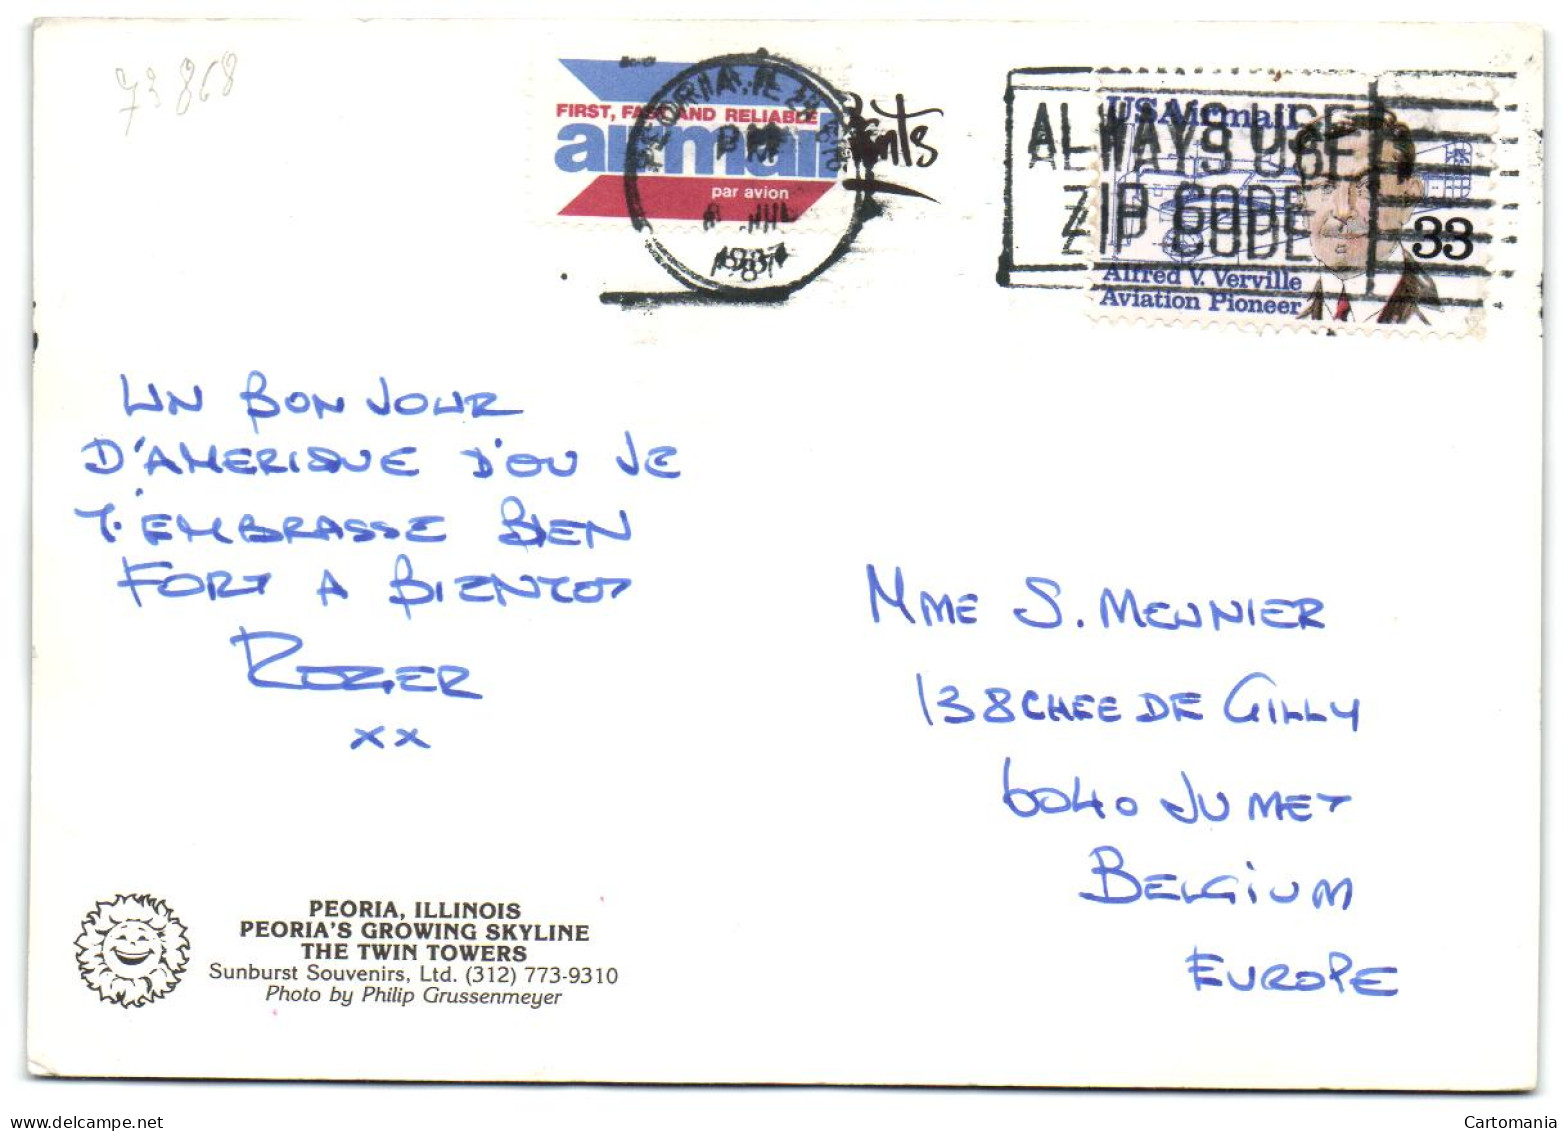 73868
FIRST, FAST AND RELIABLE
airmail
par avion
PEORIA, IL
PM
1987
ALWAYS USE
ZIP CODE
USAirmail
33
Alfred V. Verville
Aviation Pioneer
UN BONJOUR
D'AMERIQUE D'OU JE
T'EMBRASSE BIEN
FORT A BIENTOT
ROGER
XX
MME S. MEUNIER
138 CHEE DE GILLY
6040 JUMET
BELGIUM
EUROPE
PEORIA, ILLINOIS
PEORIA'S GROWING SKYLINE
THE TWIN TOWERS
Sunburst Souvenirs, Ltd. (312) 773-9310
Photo by Philip Grussenmeyer
Cartomania